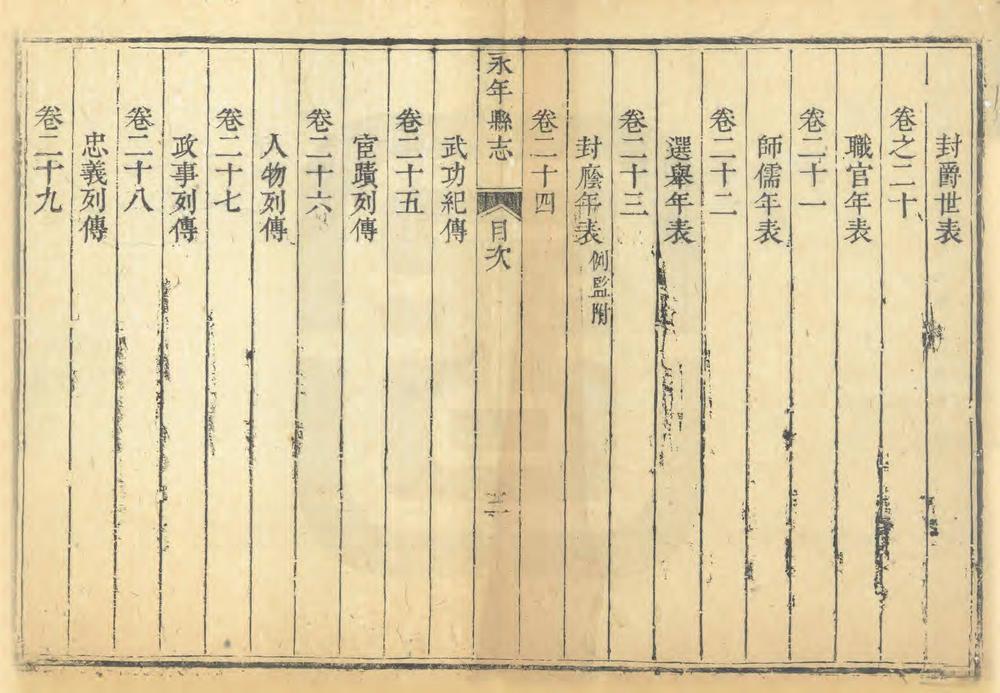 封爵世表
卷之二十
職官年表
卷二十一
師儒年表
卷二十二
選舉年表
卷二十三
封廕年表 例監附
卷二十四
永年縣志 目次
武功紀傳
卷二十五
宦蹟列傳
卷二十六
人物列傳
卷二十七
政事列傳
卷二十八
忠義列傳
卷二十九